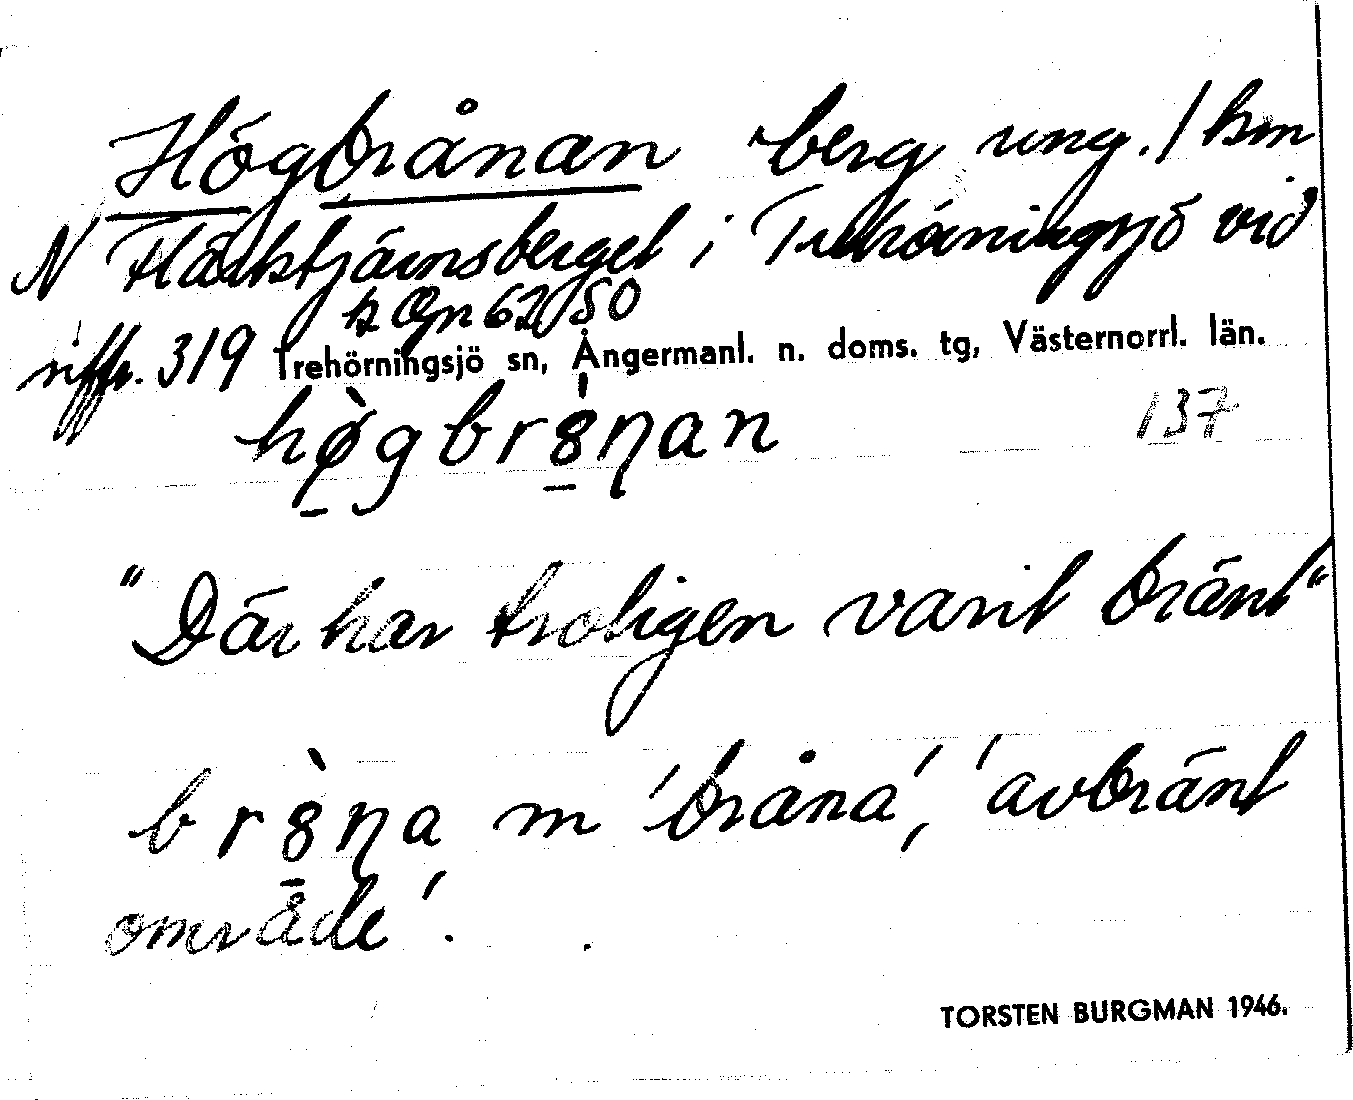 Högbrånan berg ung. 1 km
N Flärktjärnsberget i Trehörningsjö vid
siffr. 319 Trehörningsjö sn, Ångermanl. n. doms. tg, Västernorrl. län.
62 50
hø̀gbr8́ɳan
137
"Där har troligen varit bränt"
br8̀ɳa m 'bråna', 'avbränt
område'.
TORSTEN BURGMAN 1946.